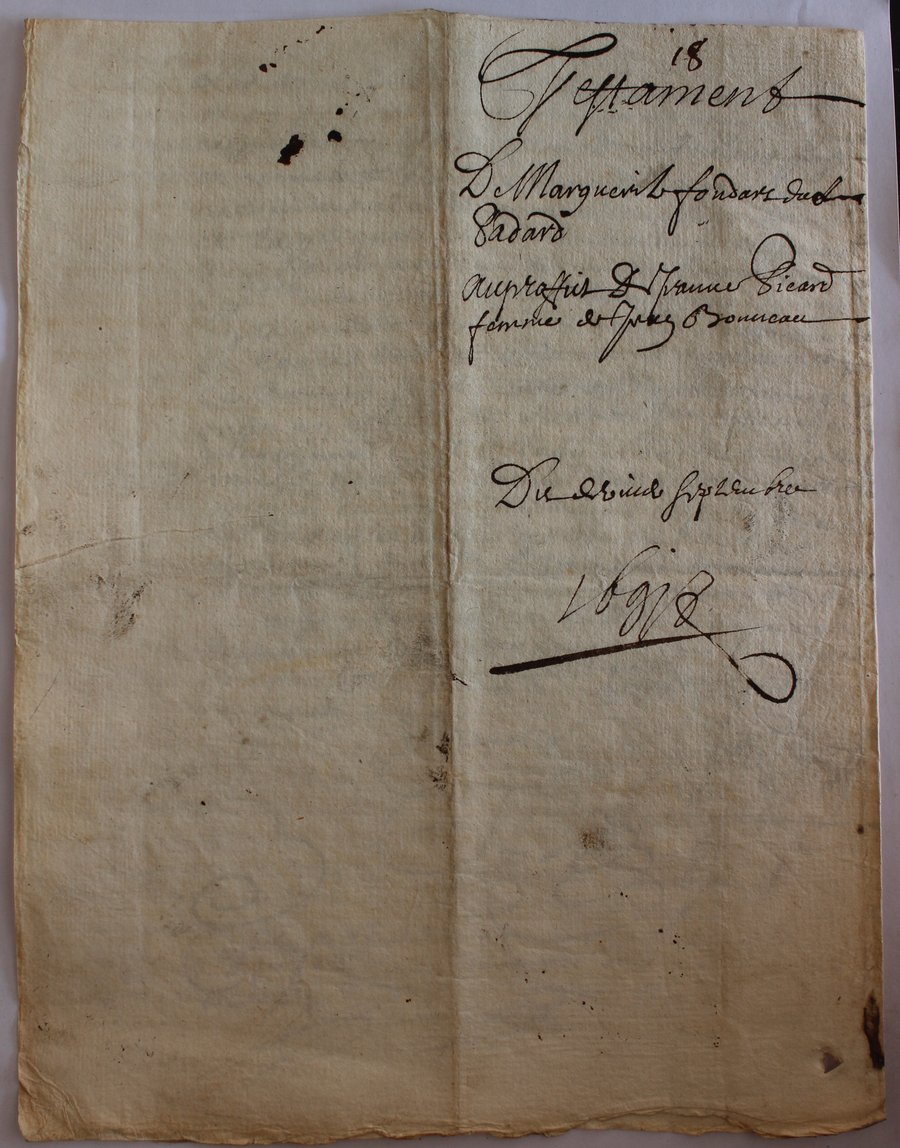 18
Testament
De Marguerite fondart
Padard
au proffict de Jeanne Picard
femme de Jean Bonneau
Du septembre